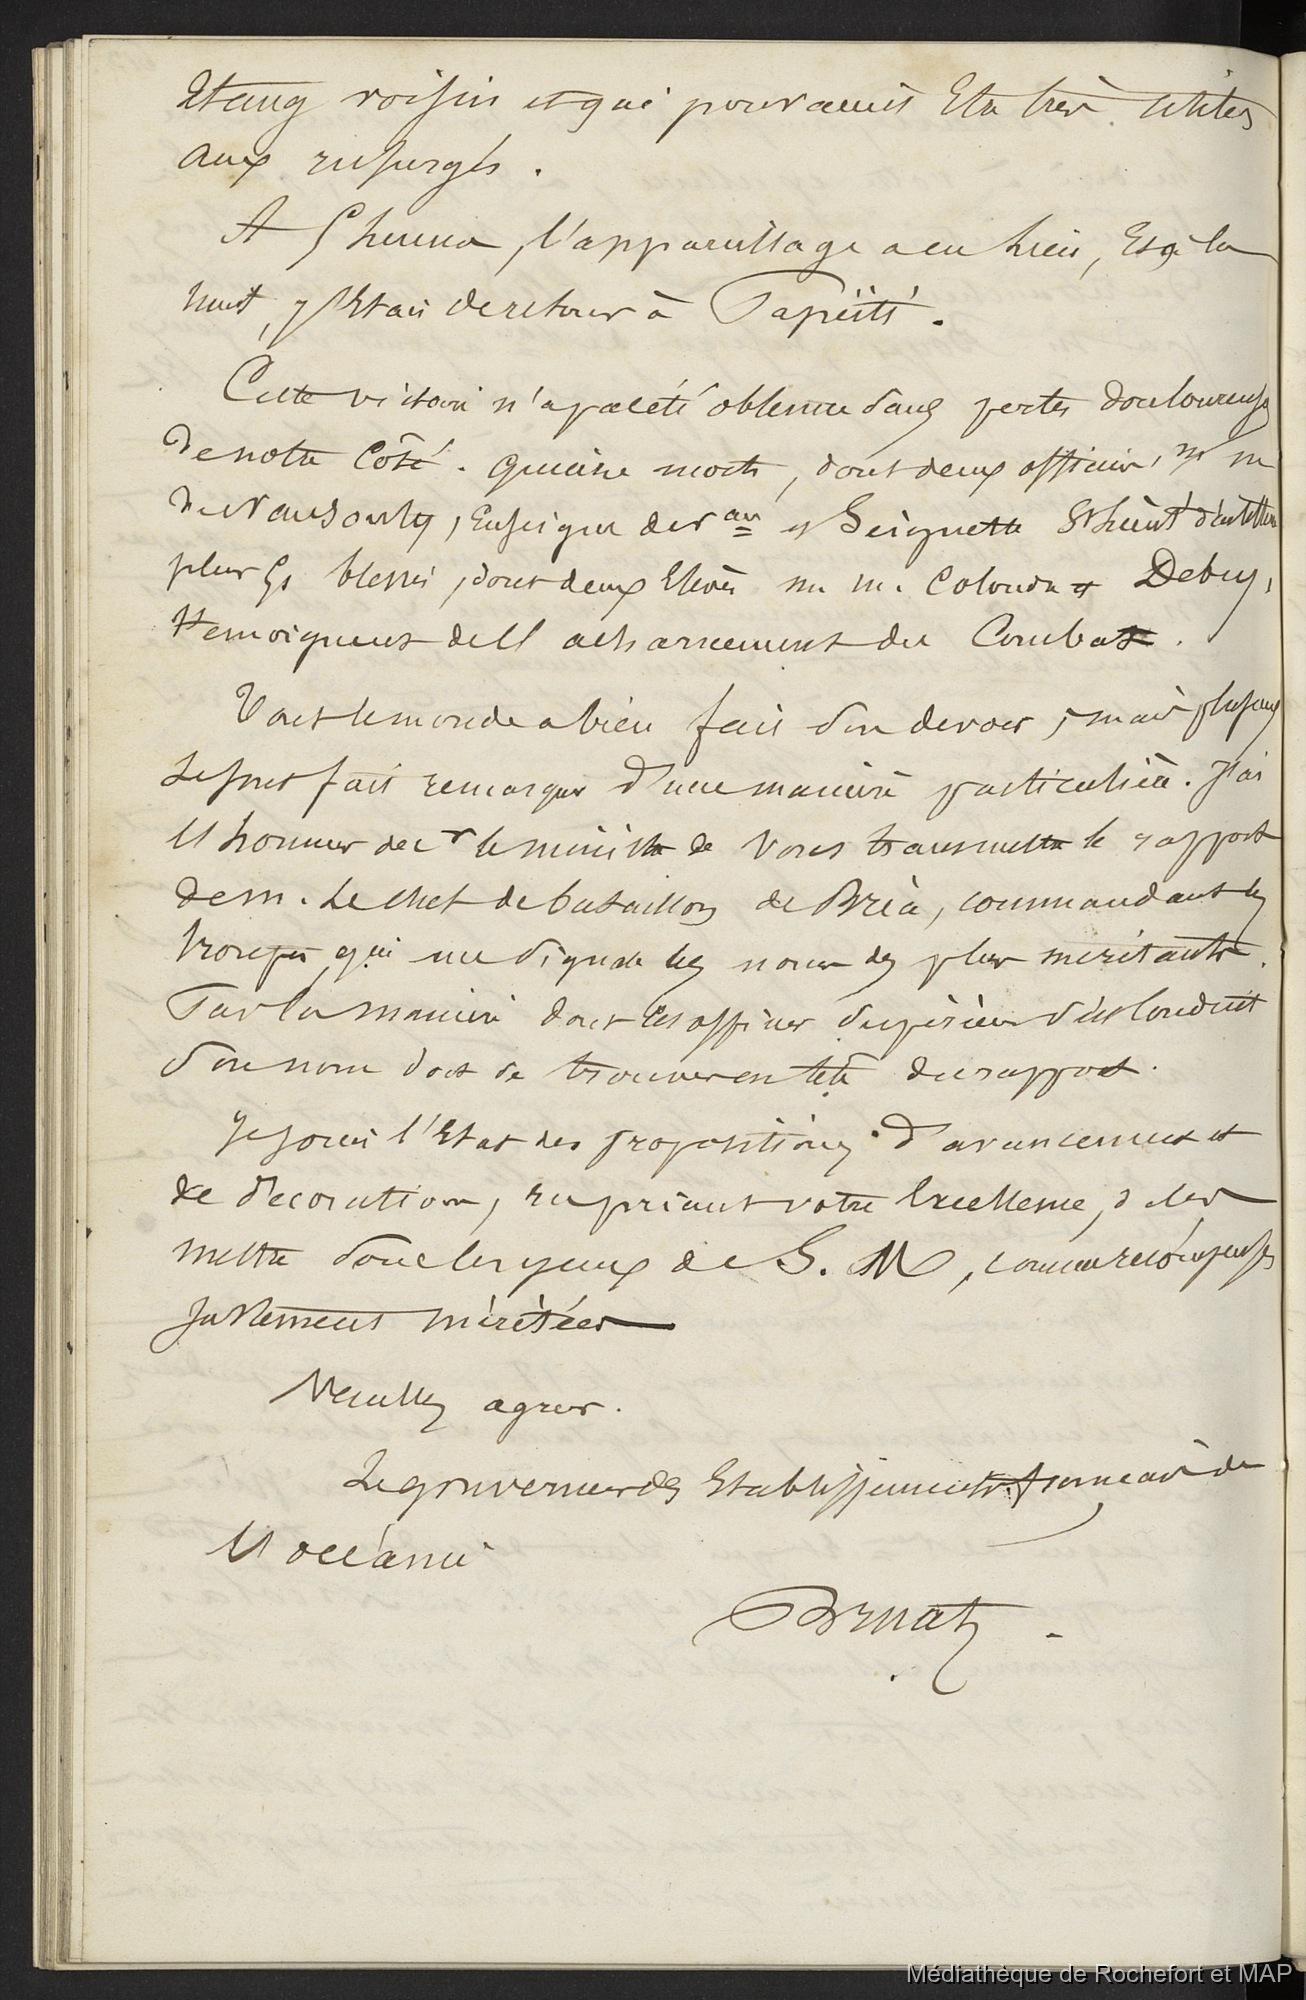 Etang voisin et qui pouvaient Etre très utiles
aux insurgés.
A 5 heures, l'appareillage a eu lieu, Et à la
nuit, j'Etais de retour à Papéïti.
Cette victoire n'a pas été obtenue sans pertes douloureuses
de notre Côté. quinze morts, dont deux officiers, m m
de Nansouty, Enseigne de vau et Seignette St lieut d'artillerie
plus 51 blessés, dont deux Elèves m m. Coloudu et Debry,
témoignent de l'acharnement du Combat.
Tout le monde a bien fait son devoir, mais plusieurs
se sont fait remarquer d'une manière particulière. J'ai
l'honneur de r le ministre de Vous transmettre le rapport
de m. Le chef de bataillon de Bréa, commandant les
troupes, qui me signale les noms des plus méritants.
Par la manière dont cet officier supérieur s'est Conduit
son nom doit se trouver en tête du rapport.
Je joins l'Etat des propositions d'avancement et
de décoration, En priant votre Excellence, de les
mettre sous les yeux de S. M, comme récompenses
justement méritées
Veuillez agréer.
Le gouverneur des Etablissements francais de
l'océanie
Bruat.
Médiathèque de Rochefort et MAP